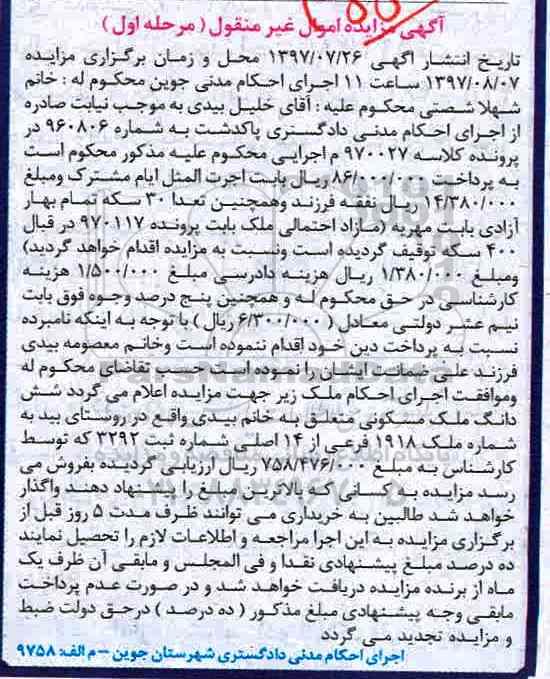 آگهی مزایده اموال غیر منقول (مرحله اول)
تاریخ انتشار آگهی ۱۳۹۷/۰۷/۲۶ محل و زمان برگزاری مزایده
۱۳۹۷/۰۸/۰۷ ساعت ۱۱ اجرای احکام مدنی جوین محکوم له : خانم
شهلا شصتی محکوم علیه : آقای خلیل بیدی به موجب نیابت صادره
از اجرای احکام مدنی دادگستری پاکدشت به شماره ۹۶۰۸۰۶ در
پرونده کلاسه ۹۷۰۰۲۷ م اجرایی محکوم علیه مذکور محکوم است
به پرداخت ۸۶/۰۰۰/۰۰۰ ریال بابت اجرت المثل ایام مشترک ومبلغ
۱۴/۳۸۰/۰۰۰ ریال نفقه فرزند وهمچنین تعدا ۳۰ سکه تمام بهار
آزادی بابت مهریه (مازاد احتمالی ملک بابت پرونده ۹۷۰۱۱۷ در قبال
۴۰۰ سکه توقیف گردیده است ونسبت به مزایده اقدام خواهد گردید)
ومبلغ ۱/۳۸۰/۰۰۰ ریال هزینه دادرسی مبلغ ۱/۵۰۰/۰۰۰ هزینه
کارشناسی در حق محکوم له و همچنین پنج درصد وجوه فوق بابت
نیم عشر دولتی معادل ( ۶/۳۰۰/۰۰۰ ریال ) با توجه به اینکه نامبرده
نسبت به پرداخت دین خود اقدام ننموده است وخانم معصومه بیدی
فرزند علی ضمانت ایشان را نموده است حسب تقاضای محکوم له
وموافقت اجرای احکام ملک زیر جهت مزایده اعلام می گردد شش
دانگ ملک مسکونی متعلق به خانم بیدی واقع در روستای بید به
شماره ملک ۱۹۱۸ فرعی از ۱۴ اصلی شماره ثبت ۳۲۹۲ که توسط
کارشناس به مبلغ ۷۵۸/۴۷۶/۰۰۰ ریال ارزیابی گردیده بفروش می
رسد مزایده به کسانی که بالاترین مبلغ را پیشنهاد دهند واگذار
خواهد شد طالبین به خریداری می توانند ظرف مدت ۵ روز قبل از
برگزاری مزایده به این اجرا مراجعه و اطلاعات لازم را تحصیل نمایند
ده درصد مبلغ پیشنهادی نقدا و فی المجلس و مابقی آن ظرف یک
ماه از برنده مزایده دریافت خواهد شد و در صورت عدم پرداخت
مابقی وجه پیشنهادی مبلغ مذکور ( ده درصد ) درحق دولت ضبط
و مزایده تجدید می گردد
اجرای احکام مدنی دادگستری شهرستان جوین – م الف: ۹۷۵۸